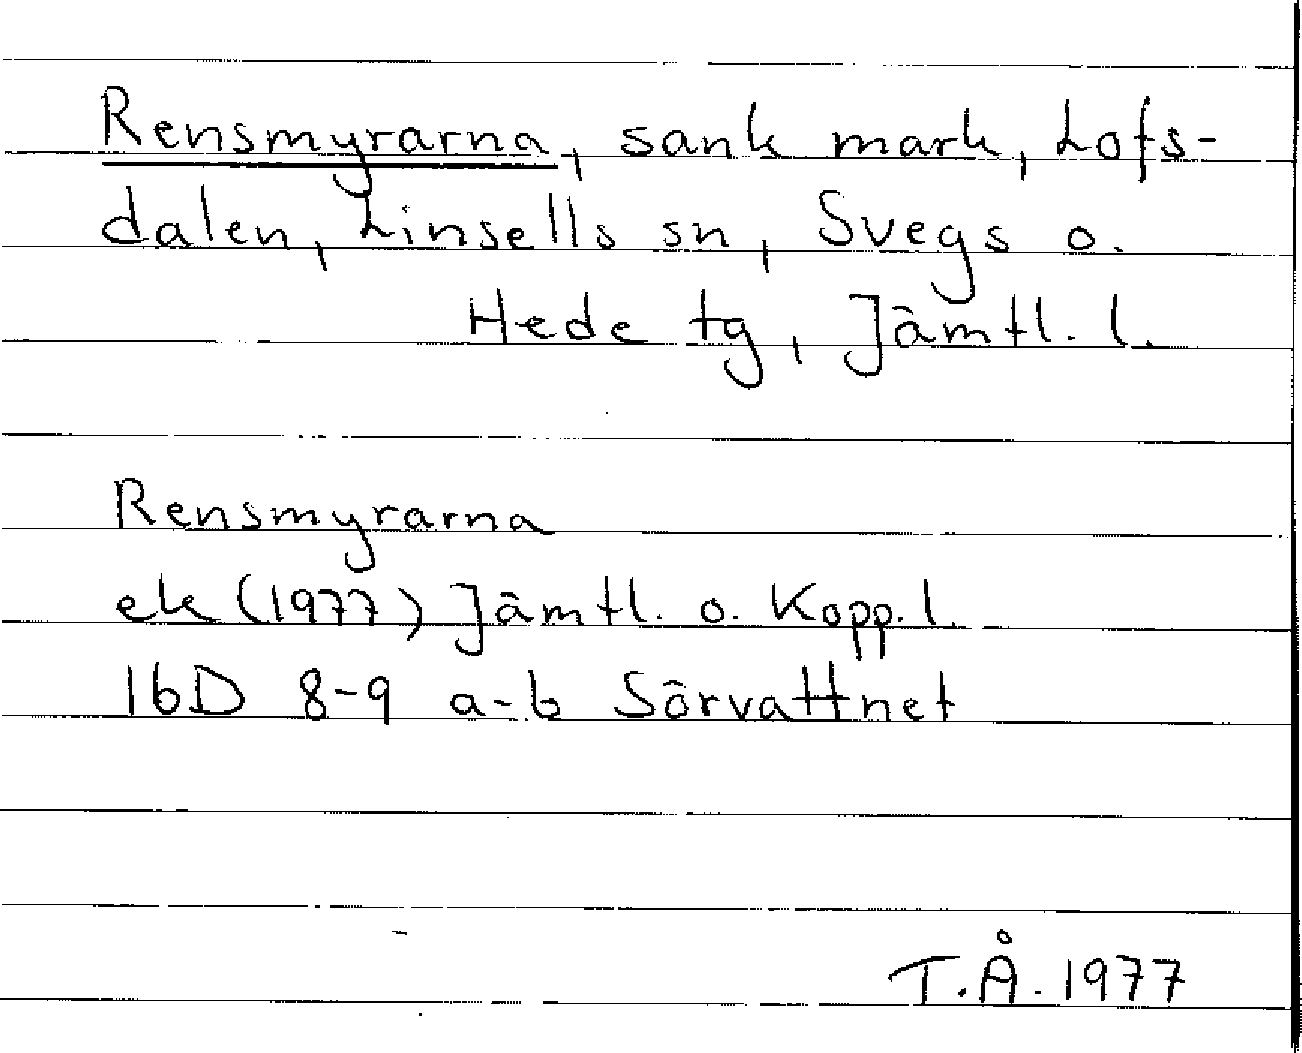 Rensmyrarna, sank mark, Lofs-
dalen, Linsells sn, Svegs o.
Hede tg, Jämtl. l.
Rensmyrarna
ek (1977) Jämtl. o. Kopp. l.
16D 8-9 a-b Sörvattnet
T.Å. 1977